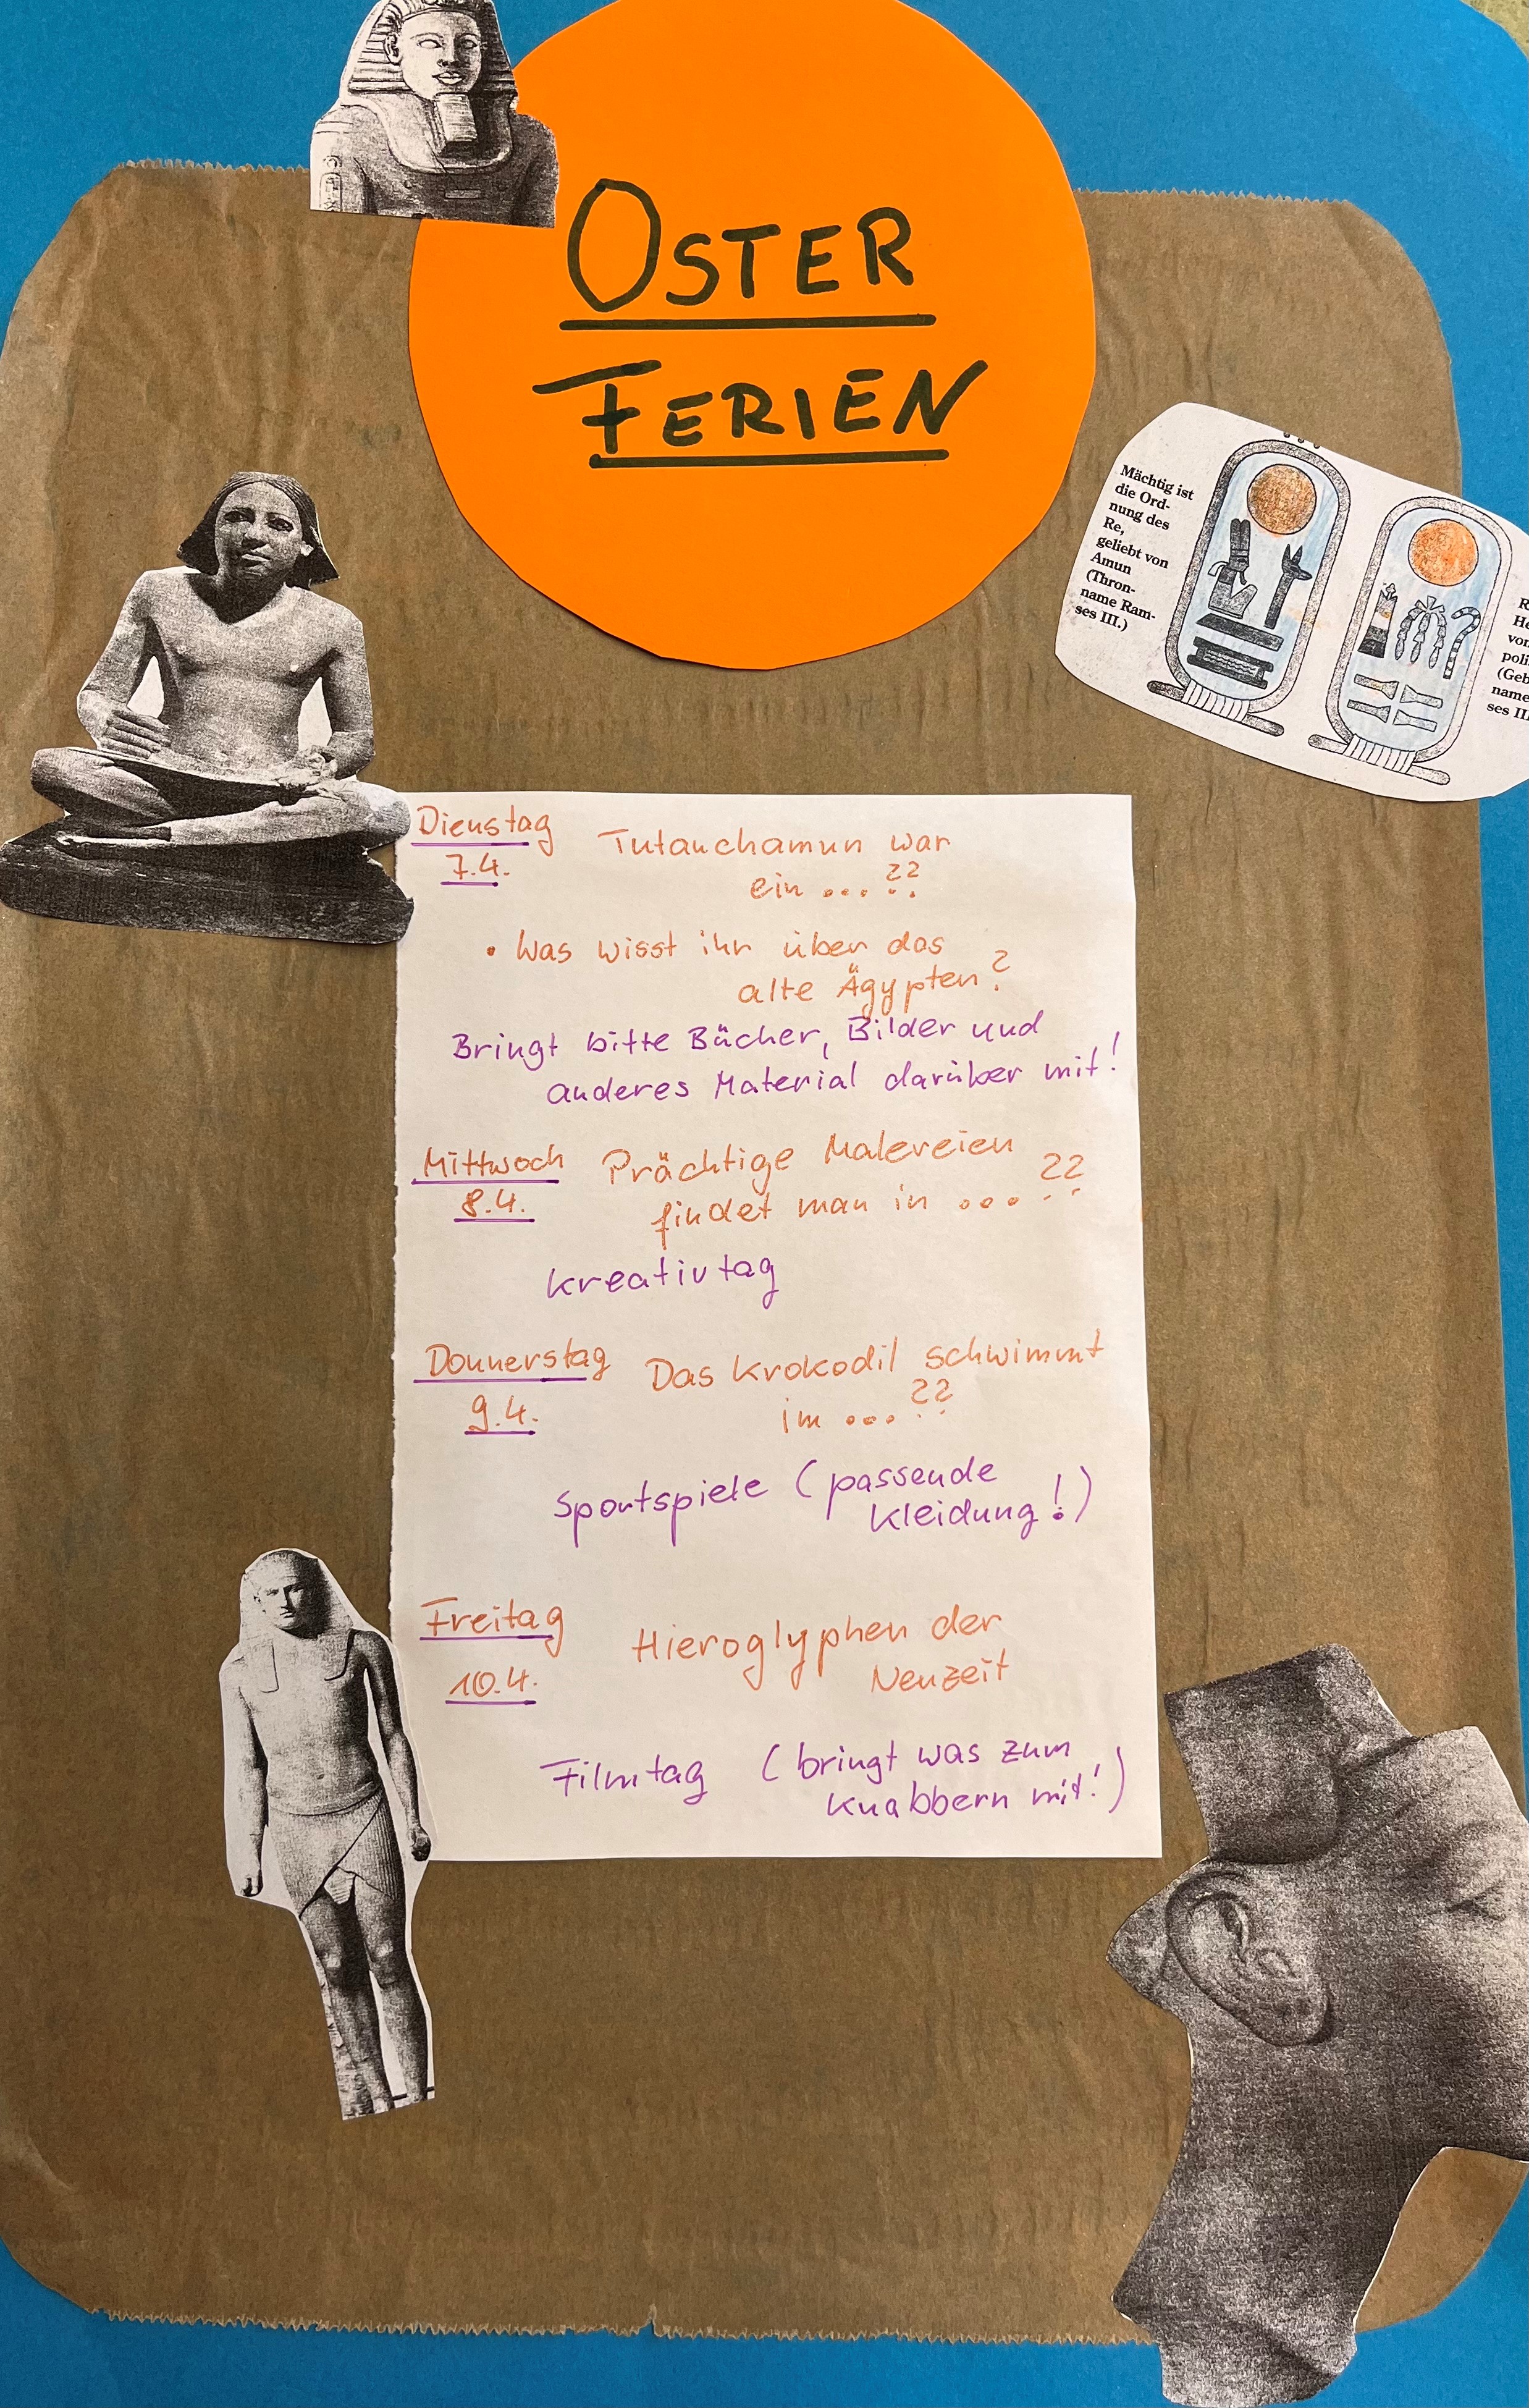 OSTER
FERIEN
Mächtig ist
die Ord-
nung des
Re,
geliebt von
Amun
(Thron-
name Ram-
ses III.)
R
He
von
poli
(Geb
name
ses II
Dienstag
7.4.
Tutanchamun war
ein ... ??
• Was wisst ihr über das
alte Ägypten?
Bringt bitte Bücher, Bilder und
anderes Material darüber mit!
Mittwoch
8.4.
Prächtige Malereien
findet man in ... ??
Kreativtag
Donnerstag
9.4.
Das Krokodil schwimmt
im ... ??
Sportspiele (passende
Kleidung!)
Freitag
10.4.
Hieroglyphen der
Neuzeit
Filmtag (bringt was zum
Knabbern mit!)